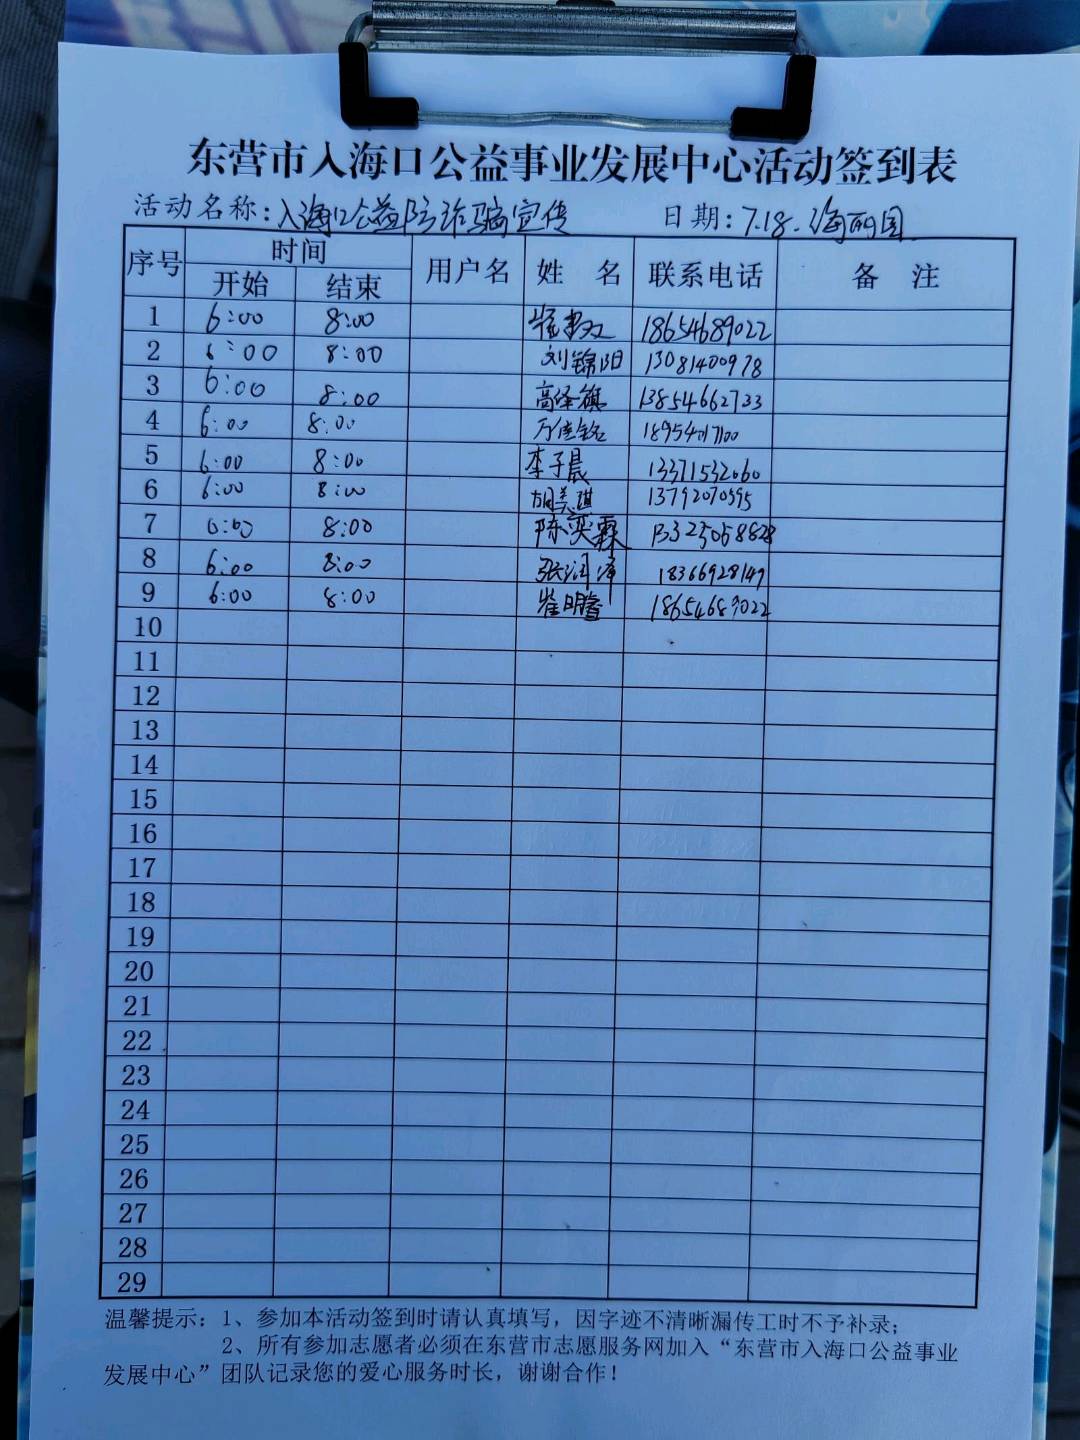 东营市入海口公益事业发展中心活动签到表
活动名称：入海口公益防诈骗宣传 日期：7.18.海丽国
序号 时间 用户名 姓名 联系电话 备注
开始 结束
1 6:00 8:00 18654689022
2 6:00 8:00 刘锦阳 13081400978
3 6:00 8:00 高泽麒 13854662733
4 6:00 8:00 万佳铭 18954017100
5 6:00 8:00 李子晨 13371532060
6 6:00 8:00 胡美琪 13792070595
7 6:00 8:00 陈奕霖 13325058828
8 6:00 8:00 张润泽 18366928149
9 6:00 8:00 崔明睿 18654689022
10
11
12
13
14
15
16
17
18
19
20
21
22
23
24
25
26
27
28
29
温馨提示：1、参加本活动签到时请认真填写，因字迹不清晰漏传工时不予补录；
2、所有参加志愿者必须在东营市志愿服务网加入“东营市入海口公益事业
发展中心”团队记录您的爱心服务时长，谢谢合作！